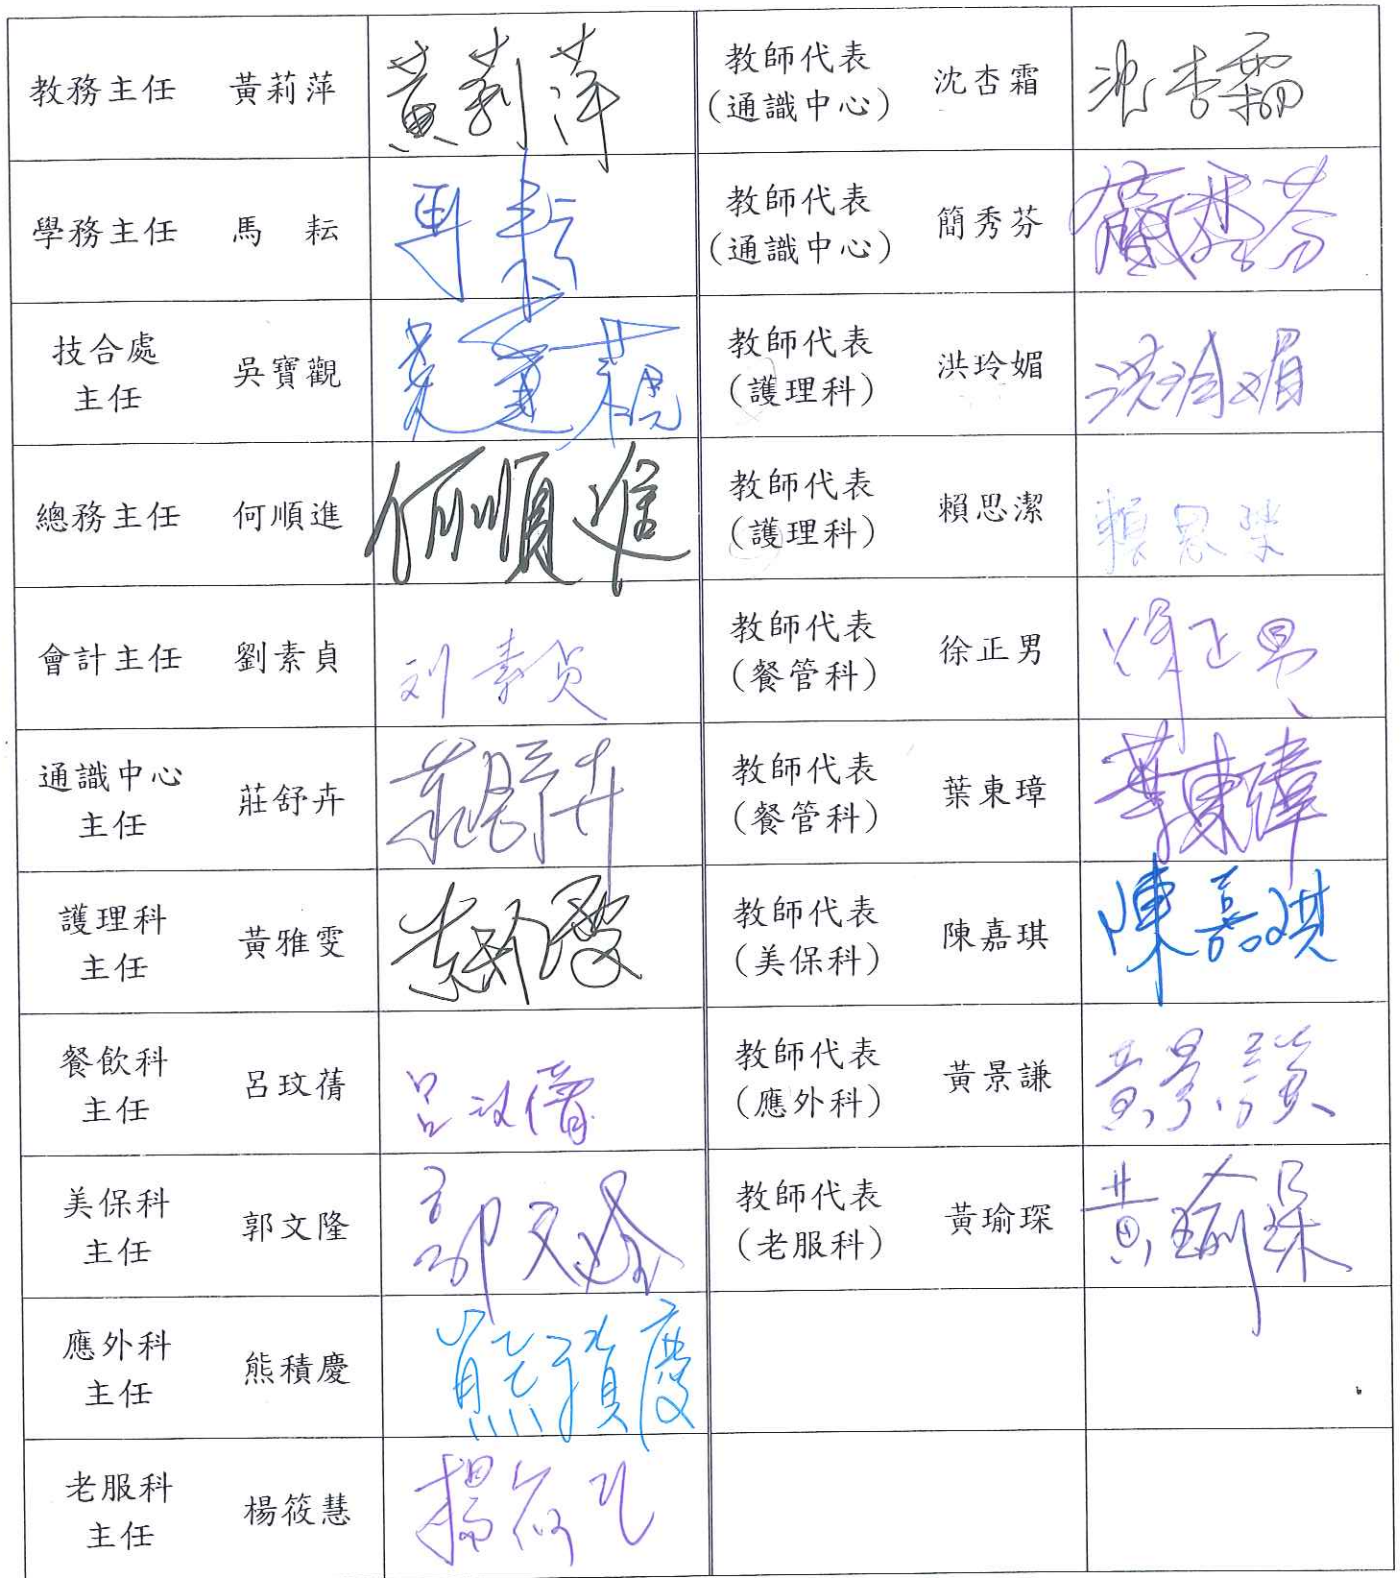 教務主任 黃莉萍 黃莉萍 教師代表 (通識中心) 沈杏霜 沈杏霜
學務主任 馬 耘 馬耘 教師代表 (通識中心) 簡秀芬 簡秀芬
技合處 主任 吳寶觀 教師代表 (護理科) 洪玲媚 洪玲媚
總務主任 何順進 何順進 教師代表 (護理科) 賴思潔 賴思潔
會計主任 劉素貞 刘素貞 教師代表 (餐管科) 徐正男 徐正男
通識中心 主任 莊舒卉 莊舒卉 教師代表 (餐管科) 葉東璋 葉東璋
護理科 主任 黃雅雯 黃雅雯 教師代表 (美保科) 陳嘉琪 陳嘉琪
餐飲科 主任 呂玟蒨 呂玟蒨 教師代表 (應外科) 黃景謙 黃景謙
美保科 主任 郭文隆 郭文隆 教師代表 (老服科) 黃瑜琛 黃瑜琛
應外科 主任 熊積慶 熊積慶
老服科 主任 楊筱慧 楊筱